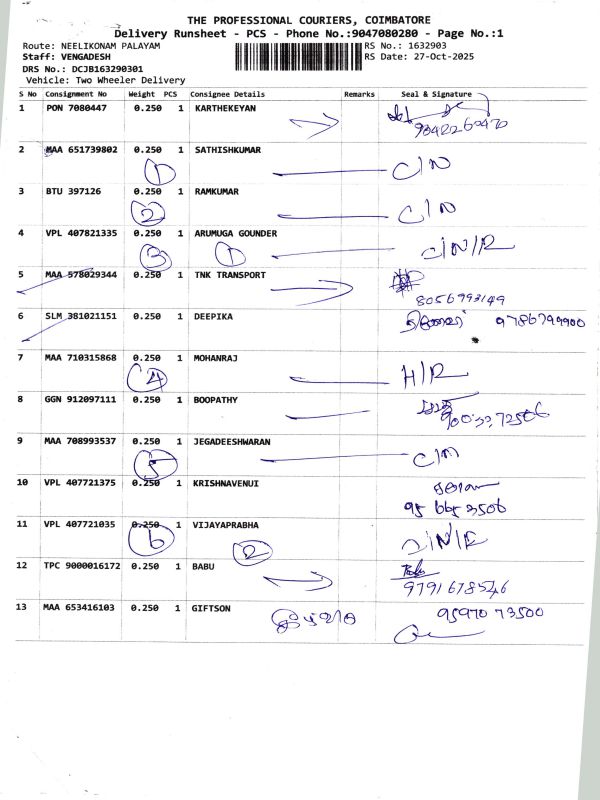 THE PROFESSIONAL COURIERS, COIMBATORE
Delivery Runsheet - PCS - Phone No.:9047080280 - Page No.:1
Route: NEELIKONAM PALAYAM RS No.: 1632903
Staff: VENGADESH RS Date: 27-Oct-2025
DRS No.: DCJB163290301
Vehicle: Two Wheeler Delivery
S No Consignment No Weight PCS Consignee Details Remarks Seal & Signature
1 PON 7080447 0.250 1 KARTHEKEYAN
2 MAA 651739802 0.250 1 SATHISHKUMAR C/N
1
3 BTU 397126 0.250 1 RAMKUMAR C/N
2
4 VPL 407821335 0.250 1 ARUMUGA GOUNDER C/N/R
3 1
5 MAA 578029344 0.250 1 TNK TRANSPORT
8056993149
6 SLM 381021151 0.250 1 DEEPIKA
7 MAA 710315868 0.250 1 MOHANRAJ H/R
4
8 GGN 912097111 0.250 1 BOOPATHY
9 MAA 708993537 0.250 1 JEGADEESHWARAN
5
10 VPL 407721375 0.250 1 KRISHNAVENUI
95 665 3506
11 VPL 407721035 0.250 1 VIJAYAPRABHA
6 2
12 TPC 9000016172 0.250 1 BABU
9791678546
13 MAA 653416103 0.250 1 GIFTSON 95970 73500